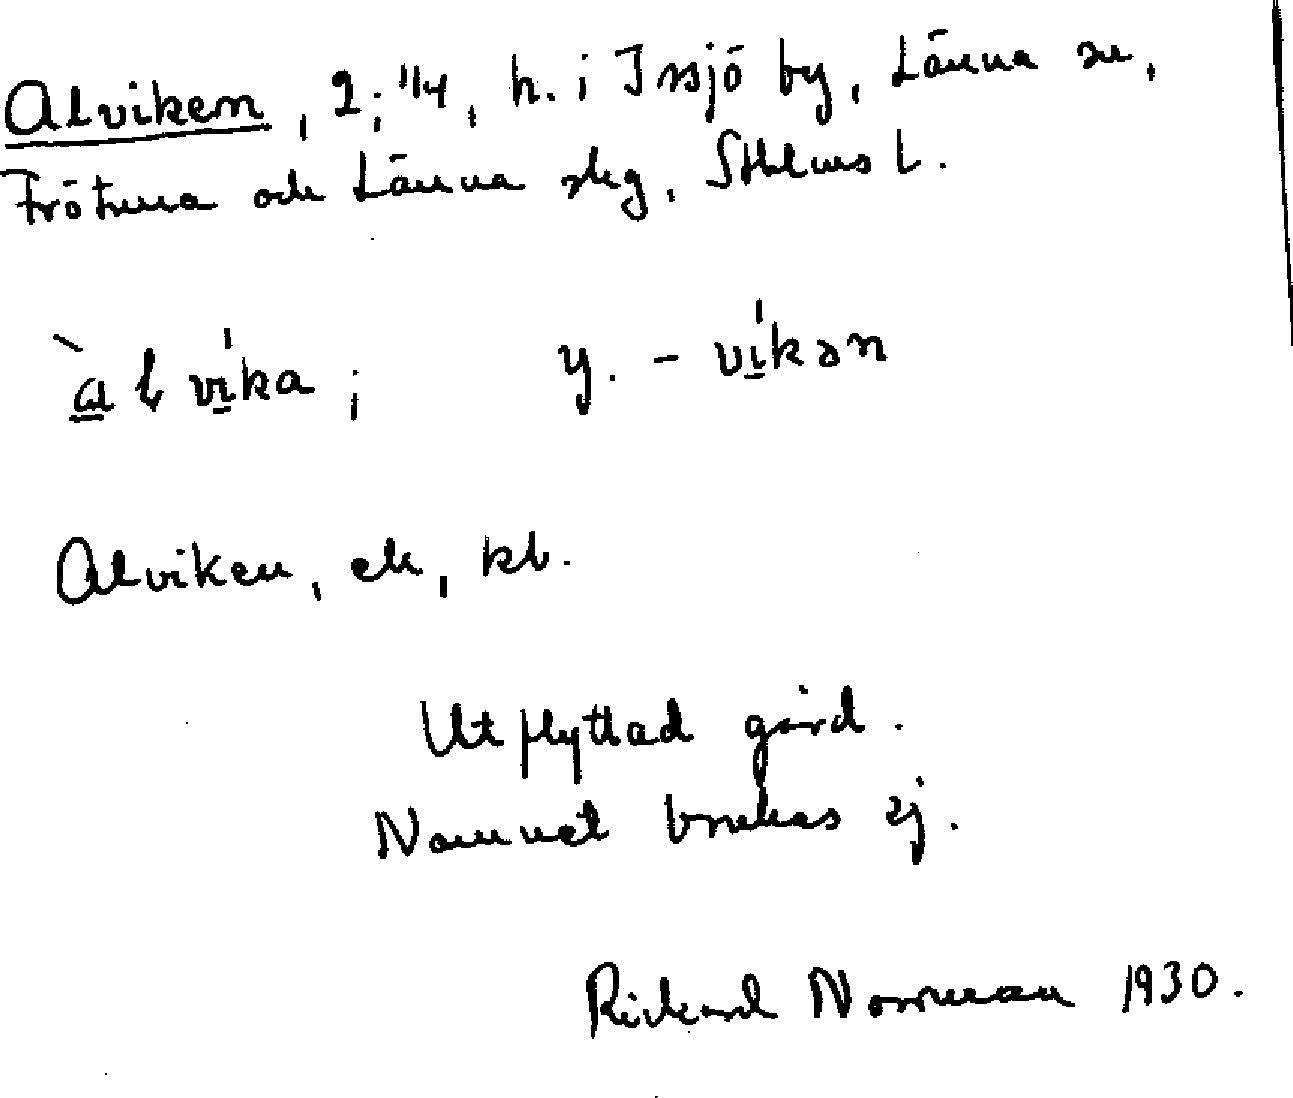 Alviken, 2; 1/4, h. i Issjö by, Länna sn,
Frötuna och Länna skg, Sthlms l.
àlvika; y. - víkən
Alviken, ek, kb.
Utflyttad gård.
Namnet brukas ej.
Rickard Norrman 1930.